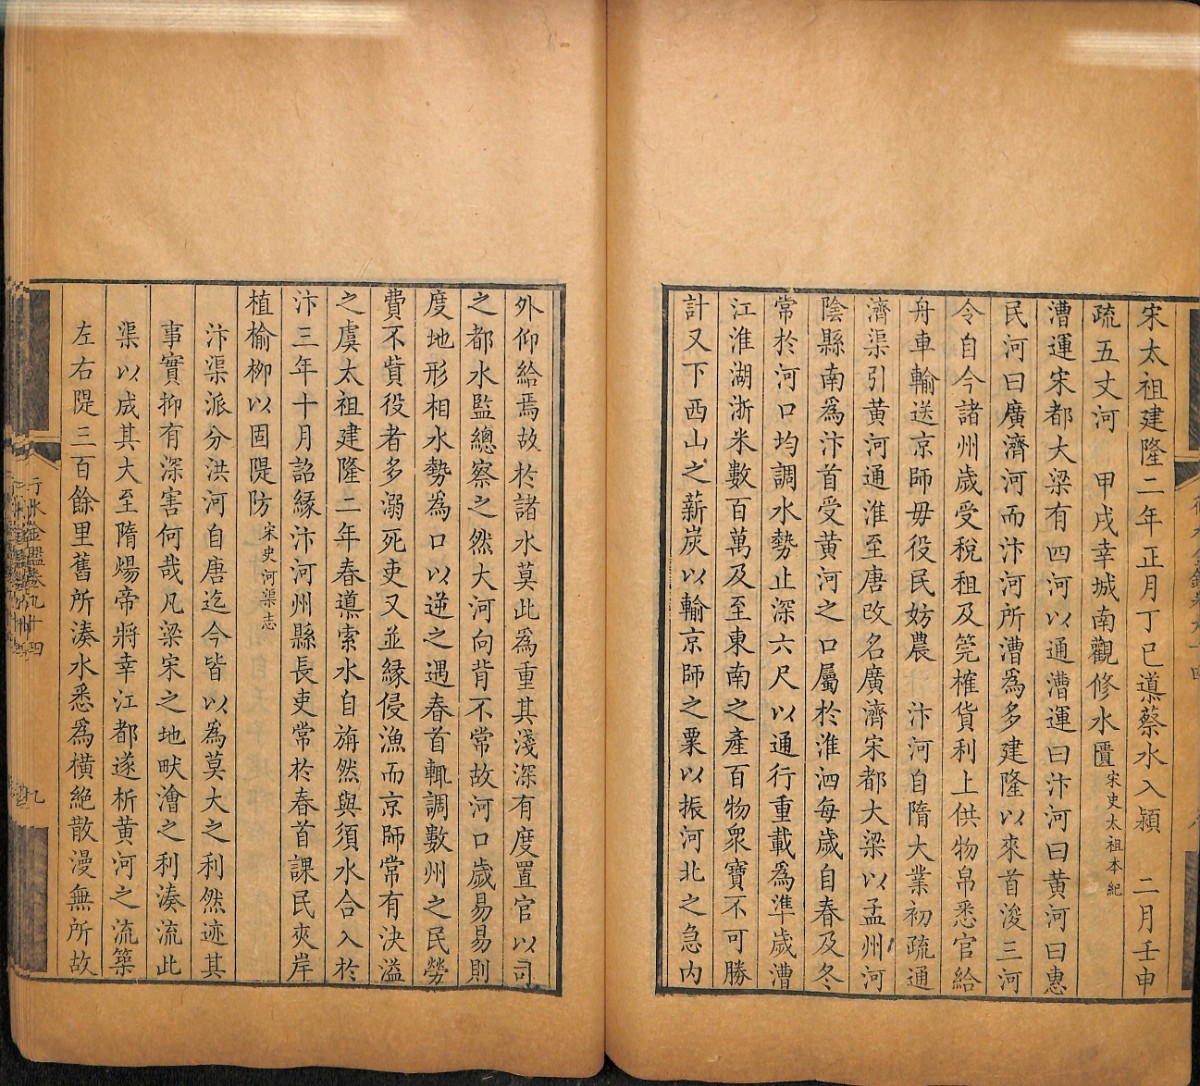 宋太祖建隆二年正月丁巳導蔡水入潁　二月壬申
疏五丈河　甲戌幸城南觀修水匱宋史太祖本紀
漕運宋都大梁有四河以通漕運曰汴河曰黃河曰惠
民河曰廣濟河而汴河所漕為多建隆以來首浚三河
令自今諸州歲受稅租及筦榷貨利上供物帛悉官給
舟車輸送京師毋役民妨農　汴河自隋大業初疏通
濟渠引黃河通淮至唐改名廣濟宋都大梁以孟州河
陰縣南為汴首受黃河之口屬於淮泗每歲自春及冬
常於河口均調水勢止深六尺以通行重載為準歲漕
江淮湖浙米數百萬及至東南之產百物衆寶不可勝
計又下西山之薪炭以輸京師之粟以振河北之急內
外仰給焉故於諸水莫此為重其淺深有度置官以司
之都水監總察之然大河向背不常故河口歲易易則
度地形相水勢為口以逆之遇春首輒調數州之民勞
費不貲役者多溺死吏又並緣侵漁而京師常有決溢
之虞太祖建隆二年春導索水自旃然與須水合入於
汴三年十月詔緣汴河州縣長吏常於春首課民夾岸
植榆柳以固隄防宋史河渠志
汴渠派分洪河自唐迄今皆以為莫大之利然迹其
事實抑有深害何哉凡梁宋之地畎澮之利湊流此
渠以成其大至隋煬帝將幸江都遂析黃河之流築
左右隄三百餘里舊所湊水悉為橫絕散漫無所故
行水金鑑卷九十四
九